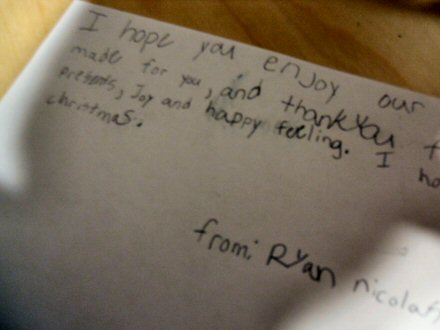 I hope you enjoy our
made for you, and thankyou
presents, Joy and happy feeling. I
christmas.
from: Ryan